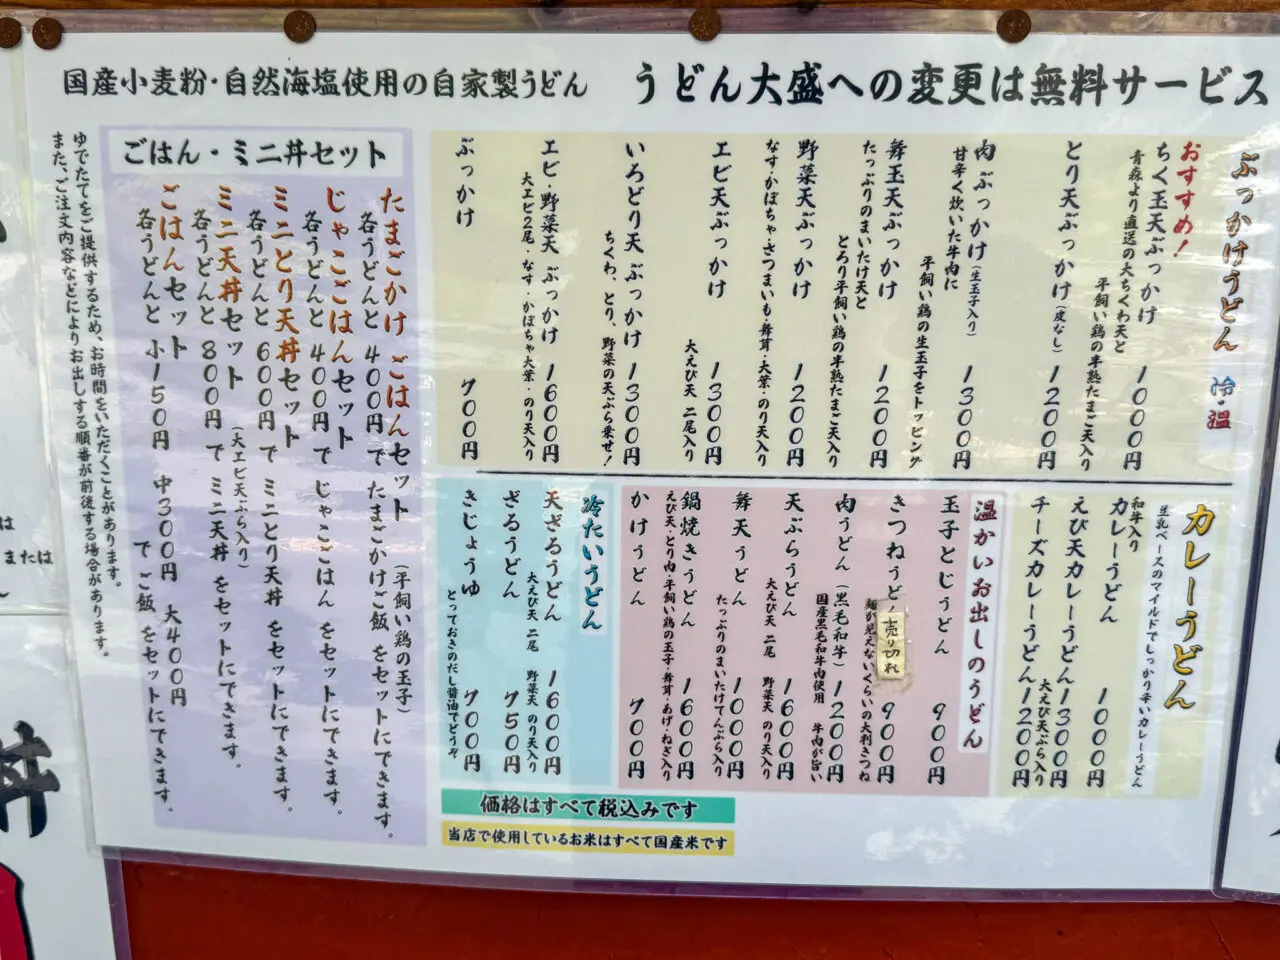 国産小麦粉・自然海塩使用の自家製うどん
うどん大盛への変更は無料サービス
ぶっかけうどん 冷・温
おすすめ!
ちく玉天ぶっかけ 1000円
青森より直送の大ちくわ天と
平飼い鶏の半熟たまご天入り
とり天ぶっかけ(皮なし) 1200円
肉ぶっかけ(生玉子入り) 1300円
甘辛く炊いた牛肉に
平飼い鶏の生玉子をトッピング
舞玉天ぶっかけ 1200円
たっぷりのまいたけ天と
とろり平飼い鶏の半熟たまご天入り
野菜天ぶっかけ 1200円
なす・かぼちゃ・さつまいも・舞茸・大葉・のり天入り
エビ天ぶっかけ 1300円
大えび天 二尾入り
いろどり天 ぶっかけ 1300円
ちくわ、とり、野菜の天ぷら乗せ!
エビ・野菜天 ぶっかけ 1600円
大エビ2尾、なす、かぼちゃ大葉・のり天入り
ぶっかけ 700円
カレーうどん
豆乳ベースのマイルドでしっかり辛いカレーうどん
和牛入り
カレーうどん 1000円
えび天カレーうどん 1300円
大えび天ぷら入り
チーズカレーうどん 1200円
温かいお出しのうどん
玉子とじうどん 900円
きつねうど 900円
売り切れ
麺が見えないくらいの大判きつね
肉うどん(黒毛和牛) 1200円
国産黒毛和牛肉使用 牛肉が旨い
天ぷらうどん 1600円
大えび天 二尾 野菜天 のり天入り
舞天うどん 1000円
たっぷりのまいたけてんぷら入り
鍋焼きうどん 1600円
えび天・とり肉・平飼い鶏の玉子・舞茸・あげ・ねぎ入り
かけうどん 700円
冷たいうどん
天ざるうどん 1600円
大えび天 二尾 野菜天 のり天入り
ざるうどん 750円
きじょうゆ 700円
とっておきのだし醤油でどうぞ
ごはん・ミニ丼セット
たまごかけ ごはんセット(平飼い鶏の玉子)
各うどんと 400円 で たまごかけご飯 をセットにできます。
じゃこごはんセット
各うどんと 400円 で じゃこごはん をセットにできます。
ミニとり天丼セット
各うどんと 600円 で ミニとり天丼 をセットにできます。
ミニ天丼セット(大エビ天ぷら入り)
各うどんと 800円 で ミニ天丼 をセットにできます。
ごはんセット
各うどんと 小150円 中300円 大400円
でご飯 をセットにできます。
ゆでたてをご提供するため、お時間をいただくことがあります。
また、ご注文内容などによりお出しする順番が前後する場合があります。
価格はすべて税込みです
当店で使用しているお米はすべて国産米です
は
または
丼